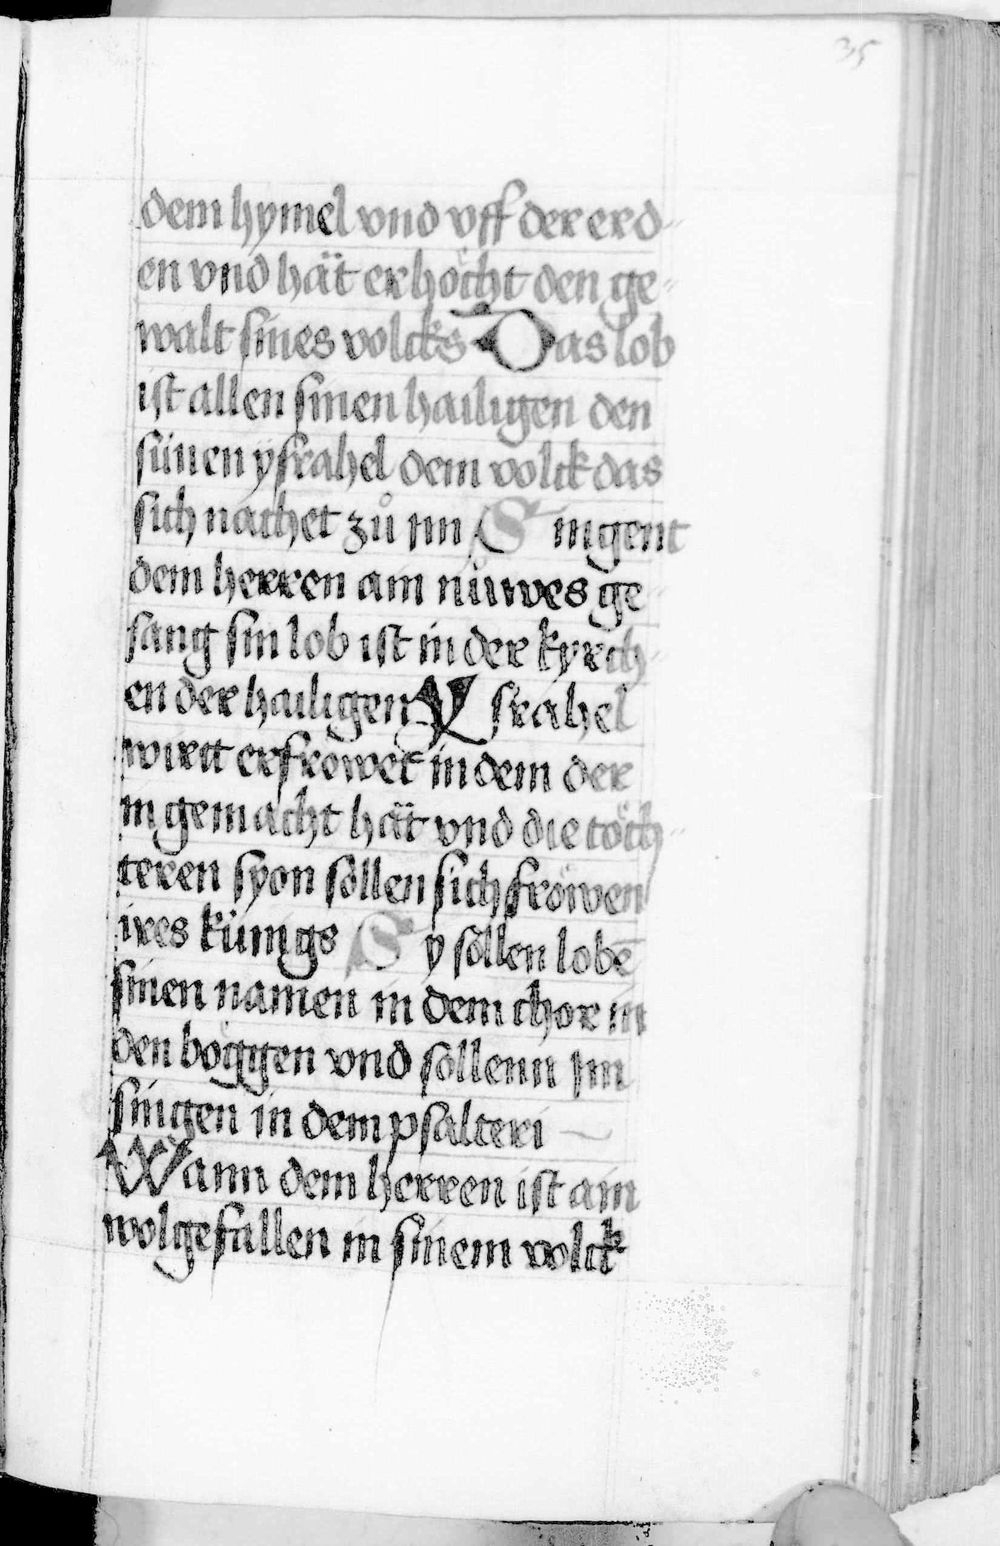 35
dem hymel vnd vff der erd-
en vnd hät er höcht den ge-
walt sines volcks Das lob
ist allen sinen hailigen den
sünen ysrahel dem volck das
sich nachet zů im Singent
dem herren ain nüwes ge-
sang sin lob ist in der kyrch-
en der hailigen Ysrahel
wirtt erfrowet in dem der
in gemacht hät vnd die töch-
teren syon söllen sich fröwen
ires künigs Sy söllen lobē
sinen namen in dem chor in
den böggen vnd söllenn im
singen in dem psalteri
Wann dem herren ist ain
wolgefallen in sinem volck